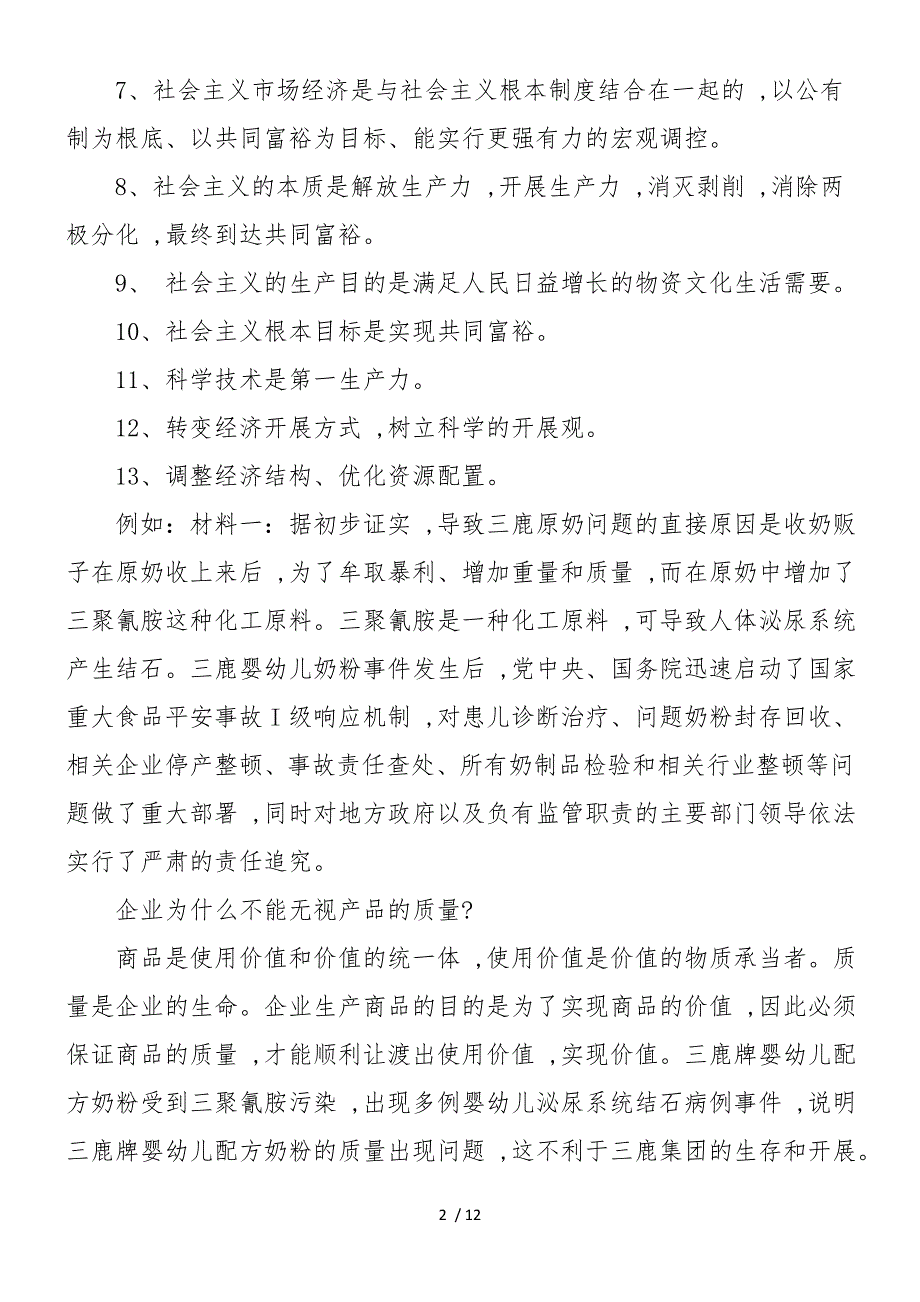 7、社会主义市场经济是与社会主义根本制度结合在一起的 ,以公有
制为根底、以共同富裕为目标、能实行更强有力的宏观调控。
8、社会主义的本质是解放生产力 ,开展生产力 ,消灭剥削 ,消除两
极分化 ,最终到达共同富裕。
9、 社会主义的生产目的是满足人民日益增长的物资文化生活需要。
10、社会主义根本目标是实现共同富裕。
11、科学技术是第一生产力。
12、转变经济开展方式 ,树立科学的开展观。
13、调整经济结构、优化资源配置。
例如: 材料一: 据初步证实 ,导致三鹿原奶问题的直接原因是收奶贩
子在原奶收上来后 ,为了牟取暴利、增加重量和质量 ,而在原奶中增加了
三聚氰胺这种化工原料。三聚氰胺是一种化工原料 ,可导致人体泌尿系统
产生结石。三鹿婴幼儿奶粉事件发生后 ,党中央、国务院迅速启动了国家
重大食品平安事故Ⅰ级响应机制 ,对患儿诊断治疗、问题奶粉封存回收、
相关企业停产整顿、事故责任查处、所有奶制品检验和相关行业整顿等问
题做了重大部署 ,同时对地方政府以及负有监管职责的主要部门领导依法
实行了严肃的责任追究。
企业为什么不能无视产品的质量?
商品是使用价值和价值的统一体 ,使用价值是价值的物质承当者。质
量是企业的生命。企业生产商品的目的是为了实现商品的价值 ,因此必须
保证商品的质量 ,才能顺利让渡出使用价值 ,实现价值。三鹿牌婴幼儿配
方奶粉受到三聚氰胺污染 ,出现多例婴幼儿泌尿系统结石病例事件 ,说明
三鹿牌婴幼儿配方奶粉的质量出现问题 ,这不利于三鹿集团的生存和开展。
2 / 12